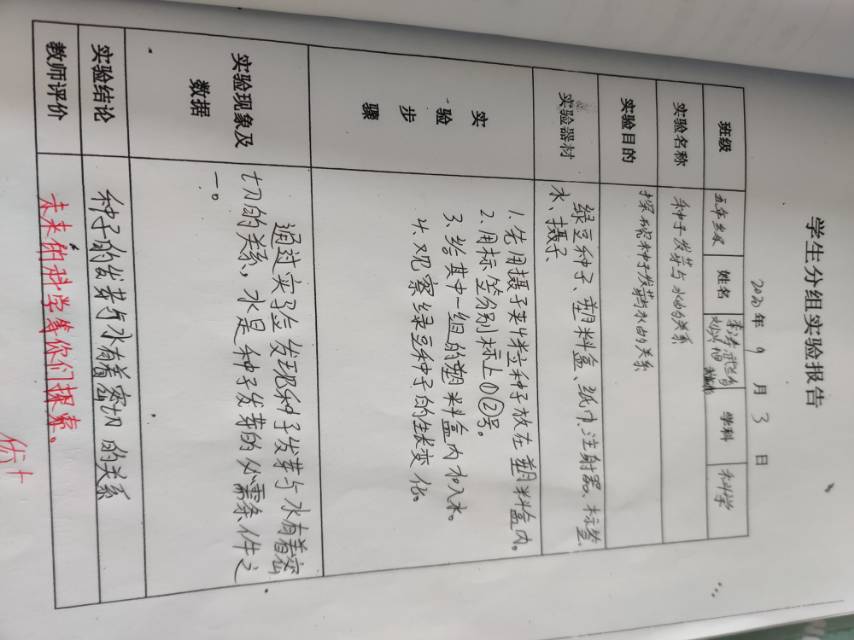 学生分组实验报告
2020年 9 月 3 日
班级 五年级 姓名 学科 科学
实验名称 种子发芽与水的关系
实验目的 探究种子发芽与水的关系
实验器材 绿豆种子、塑料盒、纸巾、注射器、标签、
水、摄子
实验步骤
1. 先用摄子夹 粒种子放在塑料盒内。
2. 用标签分别标上①②号。
3. 给其中一组的塑料盒内加入水。
4. 观察绿豆种子的生长变化。
实验现象及
数据
通过实验发现种子发芽与水有着密
切的关系,水是种子发芽的必需条件之
一。
实验结论 种子的发芽与水有着密切的关系
教师评价 未来的科学等你们探索。
优+